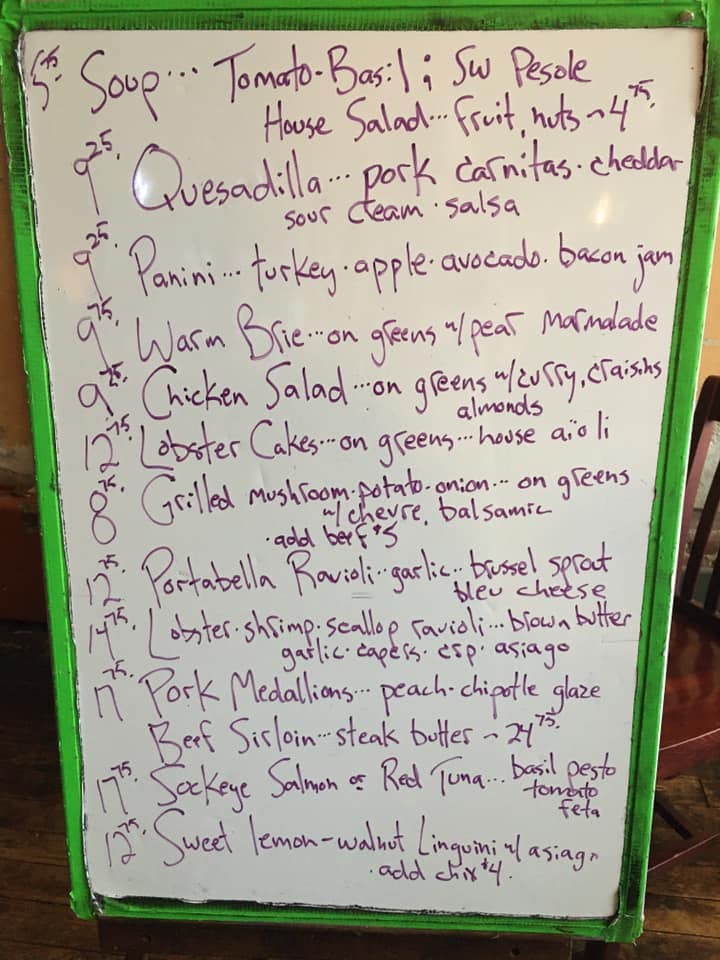 5.75 Soup... Tomato-Basil; SW Pesole
House Salad... fruit, nuts ~ 4.75.
9.25. Quesadilla... pork carnitas. cheddar
sour cream . salsa
9.25. Panini... turkey. apple. avocado. bacon jam
9.75. Warm Brie... on greens w/ pear marmalade
9.25. Chicken Salad... on greens w/ curry, craisins
almonds
12.75. Lobster Cakes... on greens... house aïoli
8.75. Grilled mushroom. potato. onion... on greens
w/ chevre, balsamic
.add beef $5
12.75. Portabella Ravioli.. garlic.. brussel sprout
bleu cheese
14.75. Lobster. shrimp. scallop ravioli... brown butter
garlic. capers. csp. asiago
17.75. Pork Medallions... peach-chipotle glaze
Beef Sirloin... steak butter ~ 24.75.
17.75. Sockeye Salmon or Red Tuna... basil pesto
tomato
feta
12.75. Sweet lemon-walnut Linguini w/ asiago
.add chix $4.